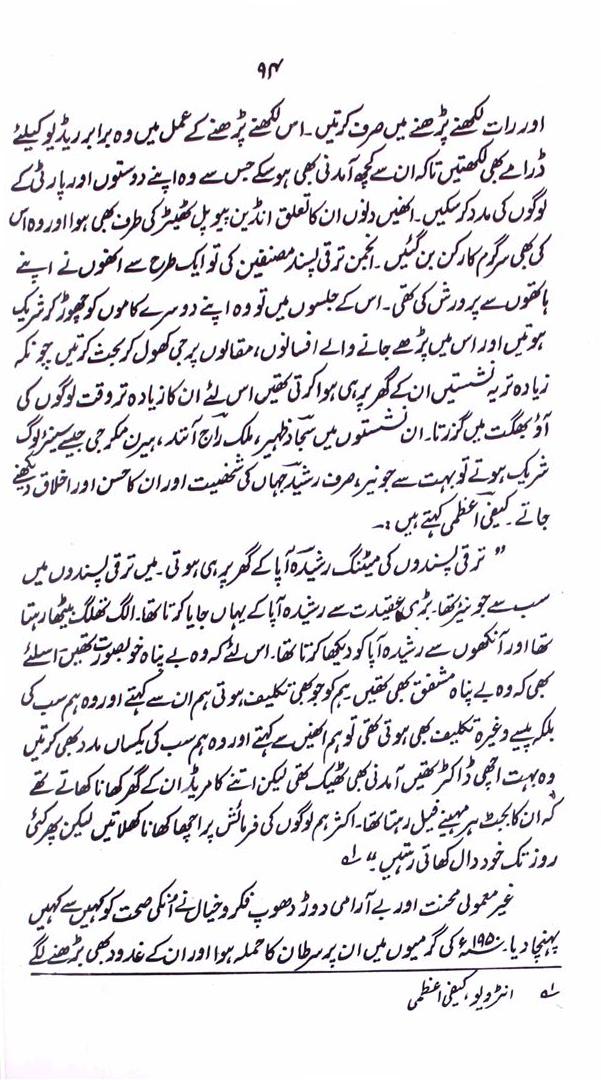 ۹۴
اور رات لکھنے پڑھنے میں صرف کرتیں۔ اس لکھنے پڑھنے کے عمل میں وہ برابر ریڈیو کیلئے
ڈرامے بھی لکھتیں تاکہ ان سے کچھ آمدنی بھی ہو سکے جس سے وہ اپنے دوستوں اور پارٹی کے
لوگوں کی مدد کر سکیں۔ انھیں دنوں ان کا تعلق انڈین پیوپل تھیٹر کی طرف بھی ہوا اور وہ اس
کی بھی سرگرم کارکن بن گئیں۔ انجمن ترقی پسند مصنفین کی تو ایک طرح سے انھوں نے اپنے
ہاتھوں سے پرورش کی تھی۔ اس کے جلسوں میں تو وہ اپنے دوسرے کاموں کو چھوڑ کر شریک
ہوتیں اور اس میں پڑھے جانے والے افسانوں، مقالوں پر جی کھول کر بحث کرتیں چونکہ
زیادہ تر یہ نشستیں ان کے گھر پر ہی ہوا کرتی تھیں اس لئے ان کا زیادہ تر وقت لوگوں کی
آؤ بھگت میں گزرتا۔ ان نشستوں میں سجاد ظہیر، ملک راج آنند، ہیرن مکرجی جیسے سینئر لوگ
شریک ہوتے تو بہت سے جونیر، صرف رشید جہاں کی شخصیت اور ان کا حسن اور اخلاق دیکھنے
جاتے۔ کیفی اعظمی کہتے ہیں :۔
" ترقی پسندوں کی میٹنگ رشیدہ آپا کے گھر پر ہی ہوتی۔ میں ترقی پسندوں میں
سب سے جونیئر تھا۔ بڑی عقیدت سے رشیدہ آپا کے یہاں جایا کرتا تھا۔ الگ تھلگ بیٹھا رہتا
تھا اور آنکھوں سے رشیدہ آپا کو دیکھا کرتا تھا۔ اس لئے کہ وہ بے پناہ خوبصورت تھیں اسلئے
بھی کہ وہ بے پناہ مشفق بھی تھیں۔ ہم کو جو بھی تکلیف ہوتی ہم ان سے کہتے اور وہ ہم سب کی
بلکہ پیسے وغیرہ تکلیف بھی ہوتی تھی تو ہم انھیں سے کہتے اور وہ ہم سب کی یکساں مدد بھی کرتیں
وہ بہت اچھی ڈاکٹر تھیں آمدنی بھی ٹھیک تھی لیکن اتنے کامریڈ ان کے گھر کھانا کھاتے تھے
کہ ان کا بجٹ ہر مہینے فیل رہتا تھا۔ اکثر ہم لوگوں کی فرمائش پر اچھا کھانا کھلاتیں لیکن پھر کئی
روز تک خود دال کھاتی رہتیں۔" ؎۱
غیر معمولی محنت اور بے آرامی دوڑ دھوپ فکر و خیال نے انکی صحت کو کہیں سے کہیں
پہنچا دیا۔ ۱۹۵۰ء کی گرمیوں میں ان پر سرطان کا حملہ ہوا اور ان کے غدود بھی بڑھنے لگے
؎۱ انٹرویو، کیفی اعظمی